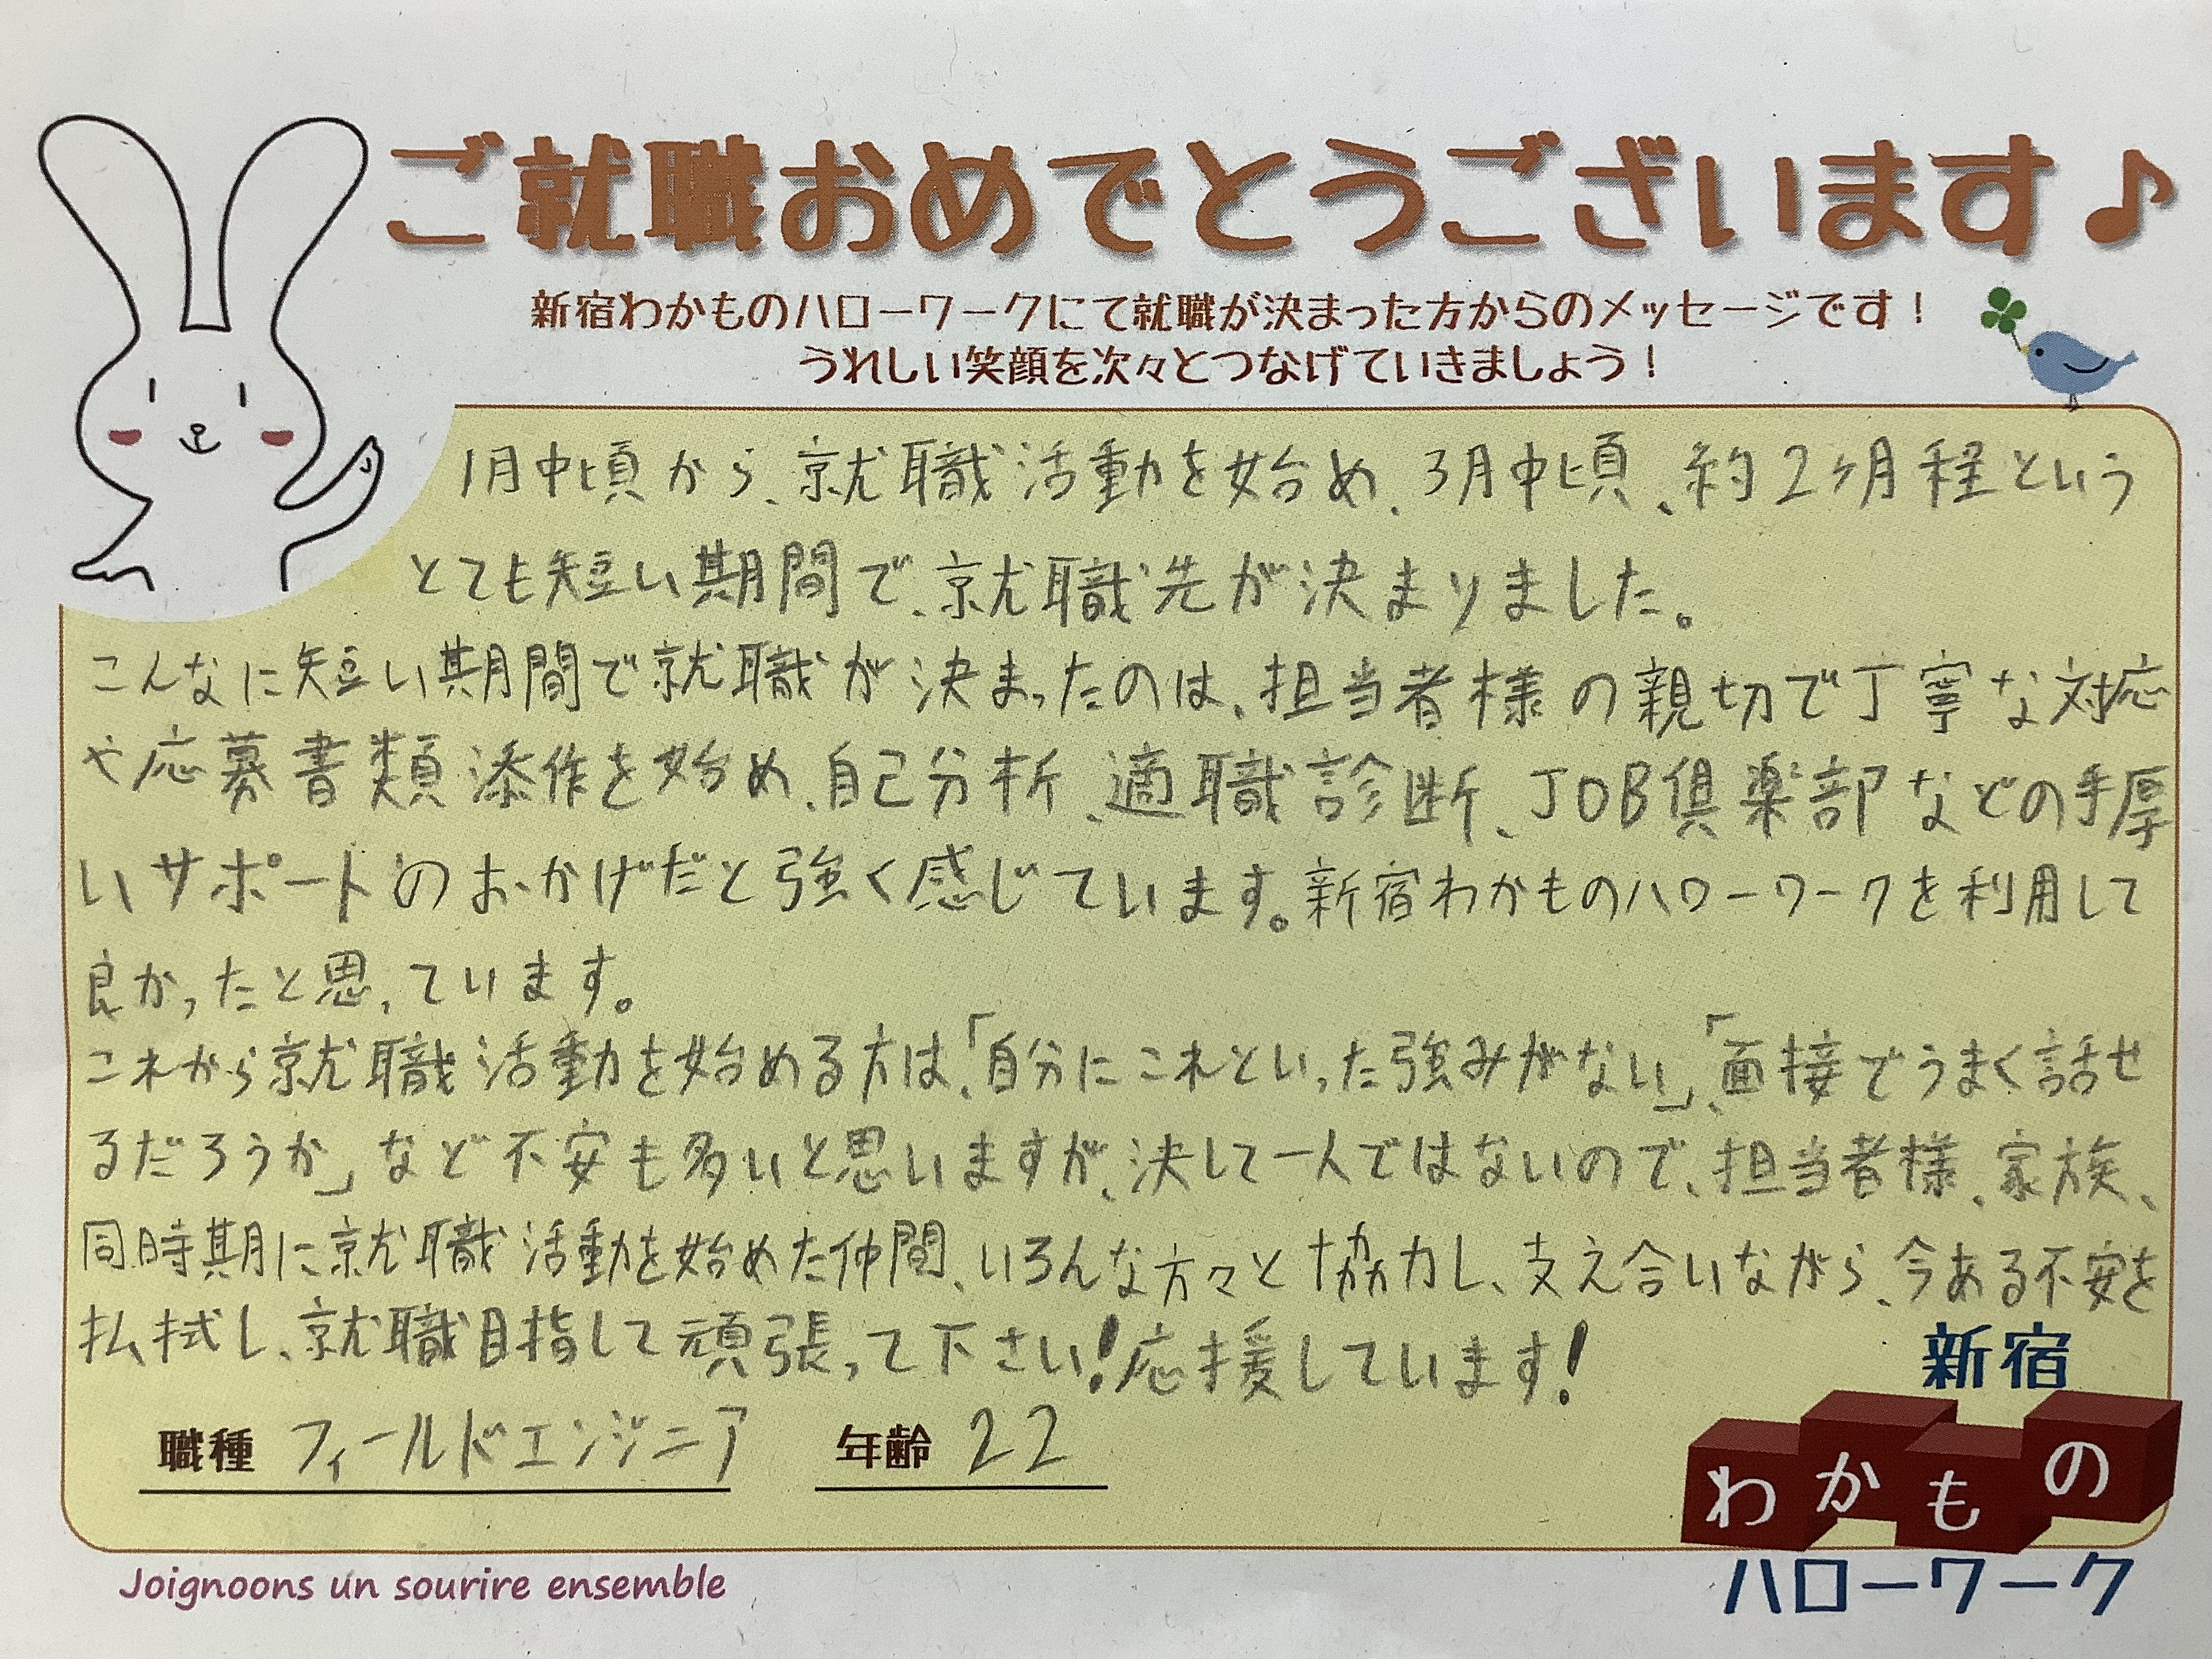 ご就職おめでとうございます♪
新宿わかものハローワークにて就職が決まった方からのメッセージです！
うれしい笑顔を次々とつなげていきましょう！
1月中頃から、就職活動を始め、3月中頃、約2ヶ月程という
とても短い期間で、就職先が決まりました。
こんなに短い期間で就職が決まったのは、担当者様の親切で丁寧な対応
や応募書類添作を始め、自己分析、適職診断、JOB倶楽部などの手厚
いサポートのおかげだと強く感じています。新宿わかものハローワークを利用して
良かったと思っています。
これから就職活動を始める方は、「自分にこれといった強みがない」、「面接でうまく話せ
るだろうか」など不安も多いと思いますが、決して一人ではないので、担当者様、家族、
同時期に就職活動を始めた仲間、いろんな方々と協力し、支え合いながら、今ある不安を
払拭し、就職目指して頑張って下さい！応援しています！
職種 フィールドエンジニア 年齢 22
新宿
わかもの
ハローワーク
Joignoons un sourire ensemble